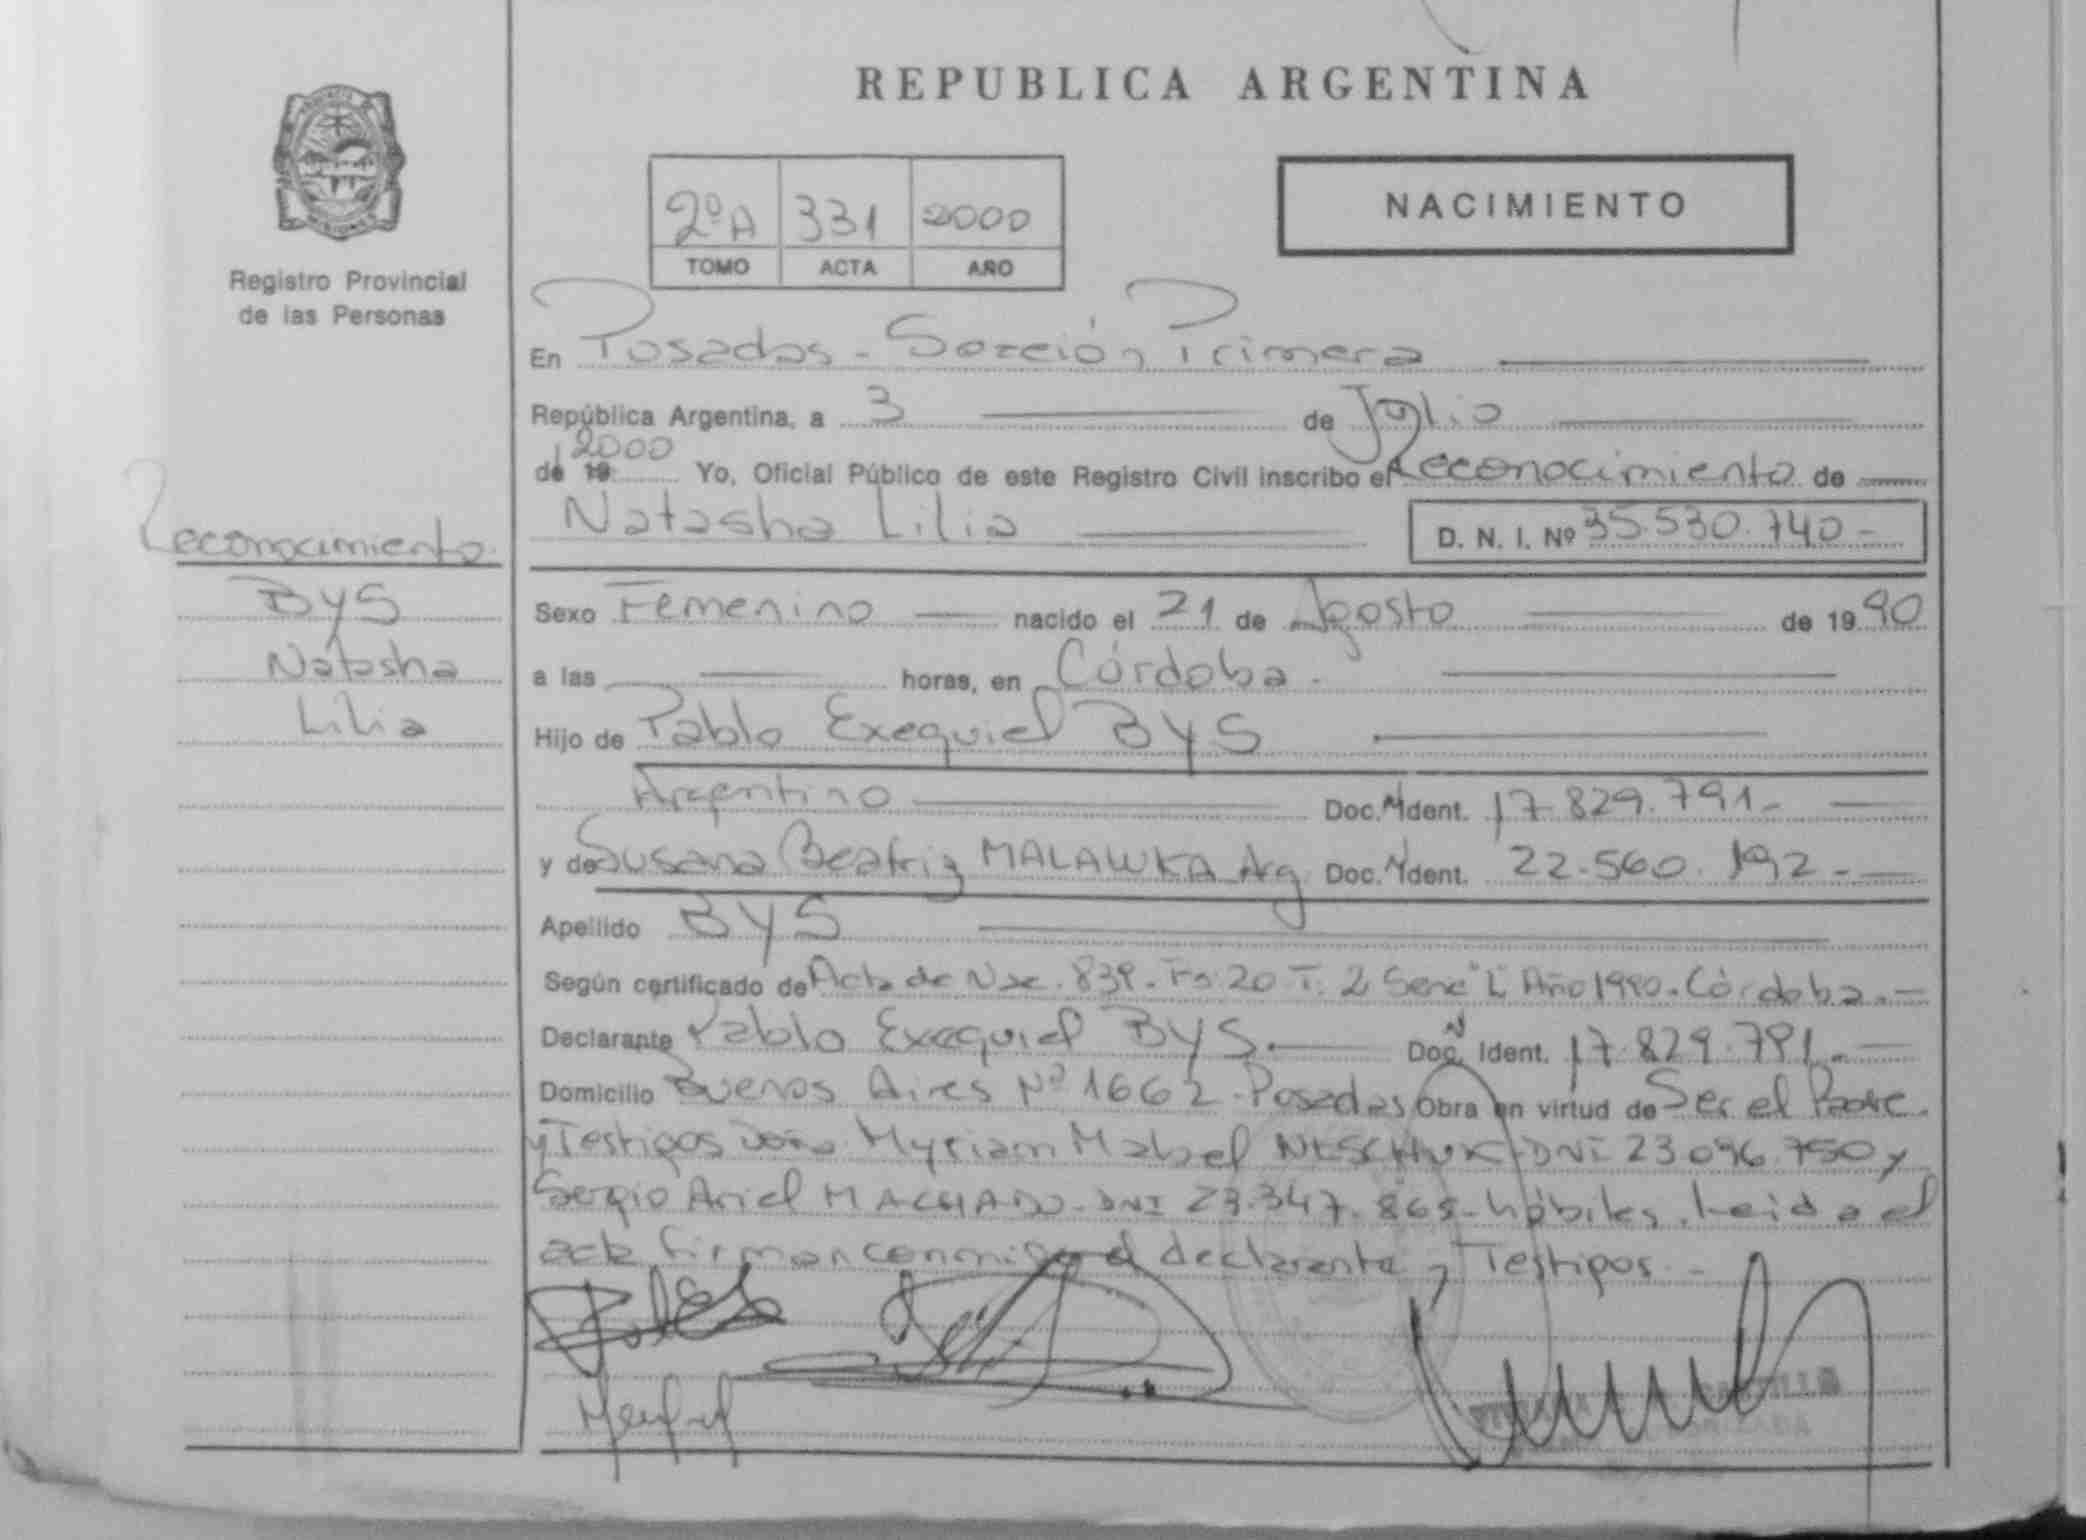 REPUBLICA ARGENTINA
NACIMIENTO
2ºA 331 2000
TOMO ACTA AÑO
Registro Provincial
de las Personas
En Posadas - Sección Primera
República Argentina, a 3 de Julio
de 19 2000 Yo, Oficial Público de este Registro Civil inscribo el Reconocimiento de
Natasha Lilia D. N. I. Nº 35.530.740-
Reconocimiento
BYS
Natasha
Lilia
Sexo Femenino nacido el 21 de Agosto de 1990
a las horas, en Córdoba.
Hijo de Pablo Exequiel BYS
Argentino Doc. N Ident. 17.829.791-
y de Susana Beatriz MALAWKA Arg Doc. N Ident. 22.560.192-
Apellido BYS
Según certificado de Acta de Nac. 839- Fº 20 T. 2 Serie "L" Año 1990- Córdoba.-
Declarante Pablo Exequiel BYS. Doc. N Ident. 17.829.791.-
Domicilio Buenos Aires Nº 1662 - Posadas Obra en virtud de Ser el Padre
y Testigos Myriam Mabel DNI 23.096.750 y
Sergio Ariel MACHADO- DNI 23.347.868- hábiles. Leida el
acta firman conmigo el declarante y Testigos -